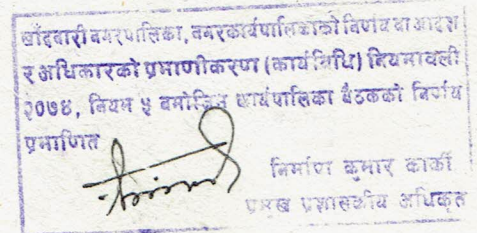 खाँदबारी नगरपालिका, नगरकार्यपालिकाको निर्णय वा आदेश
र अधिकारको प्रमाणीकरण (कार्यविधि) नियमावली
२०७४, नियम ५ बमोजिम कार्यपालिका बैठकको निर्णय
प्रमाणित
निर्माण कुमार कार्की
प्रमुख प्रशासकीय अधिकृत